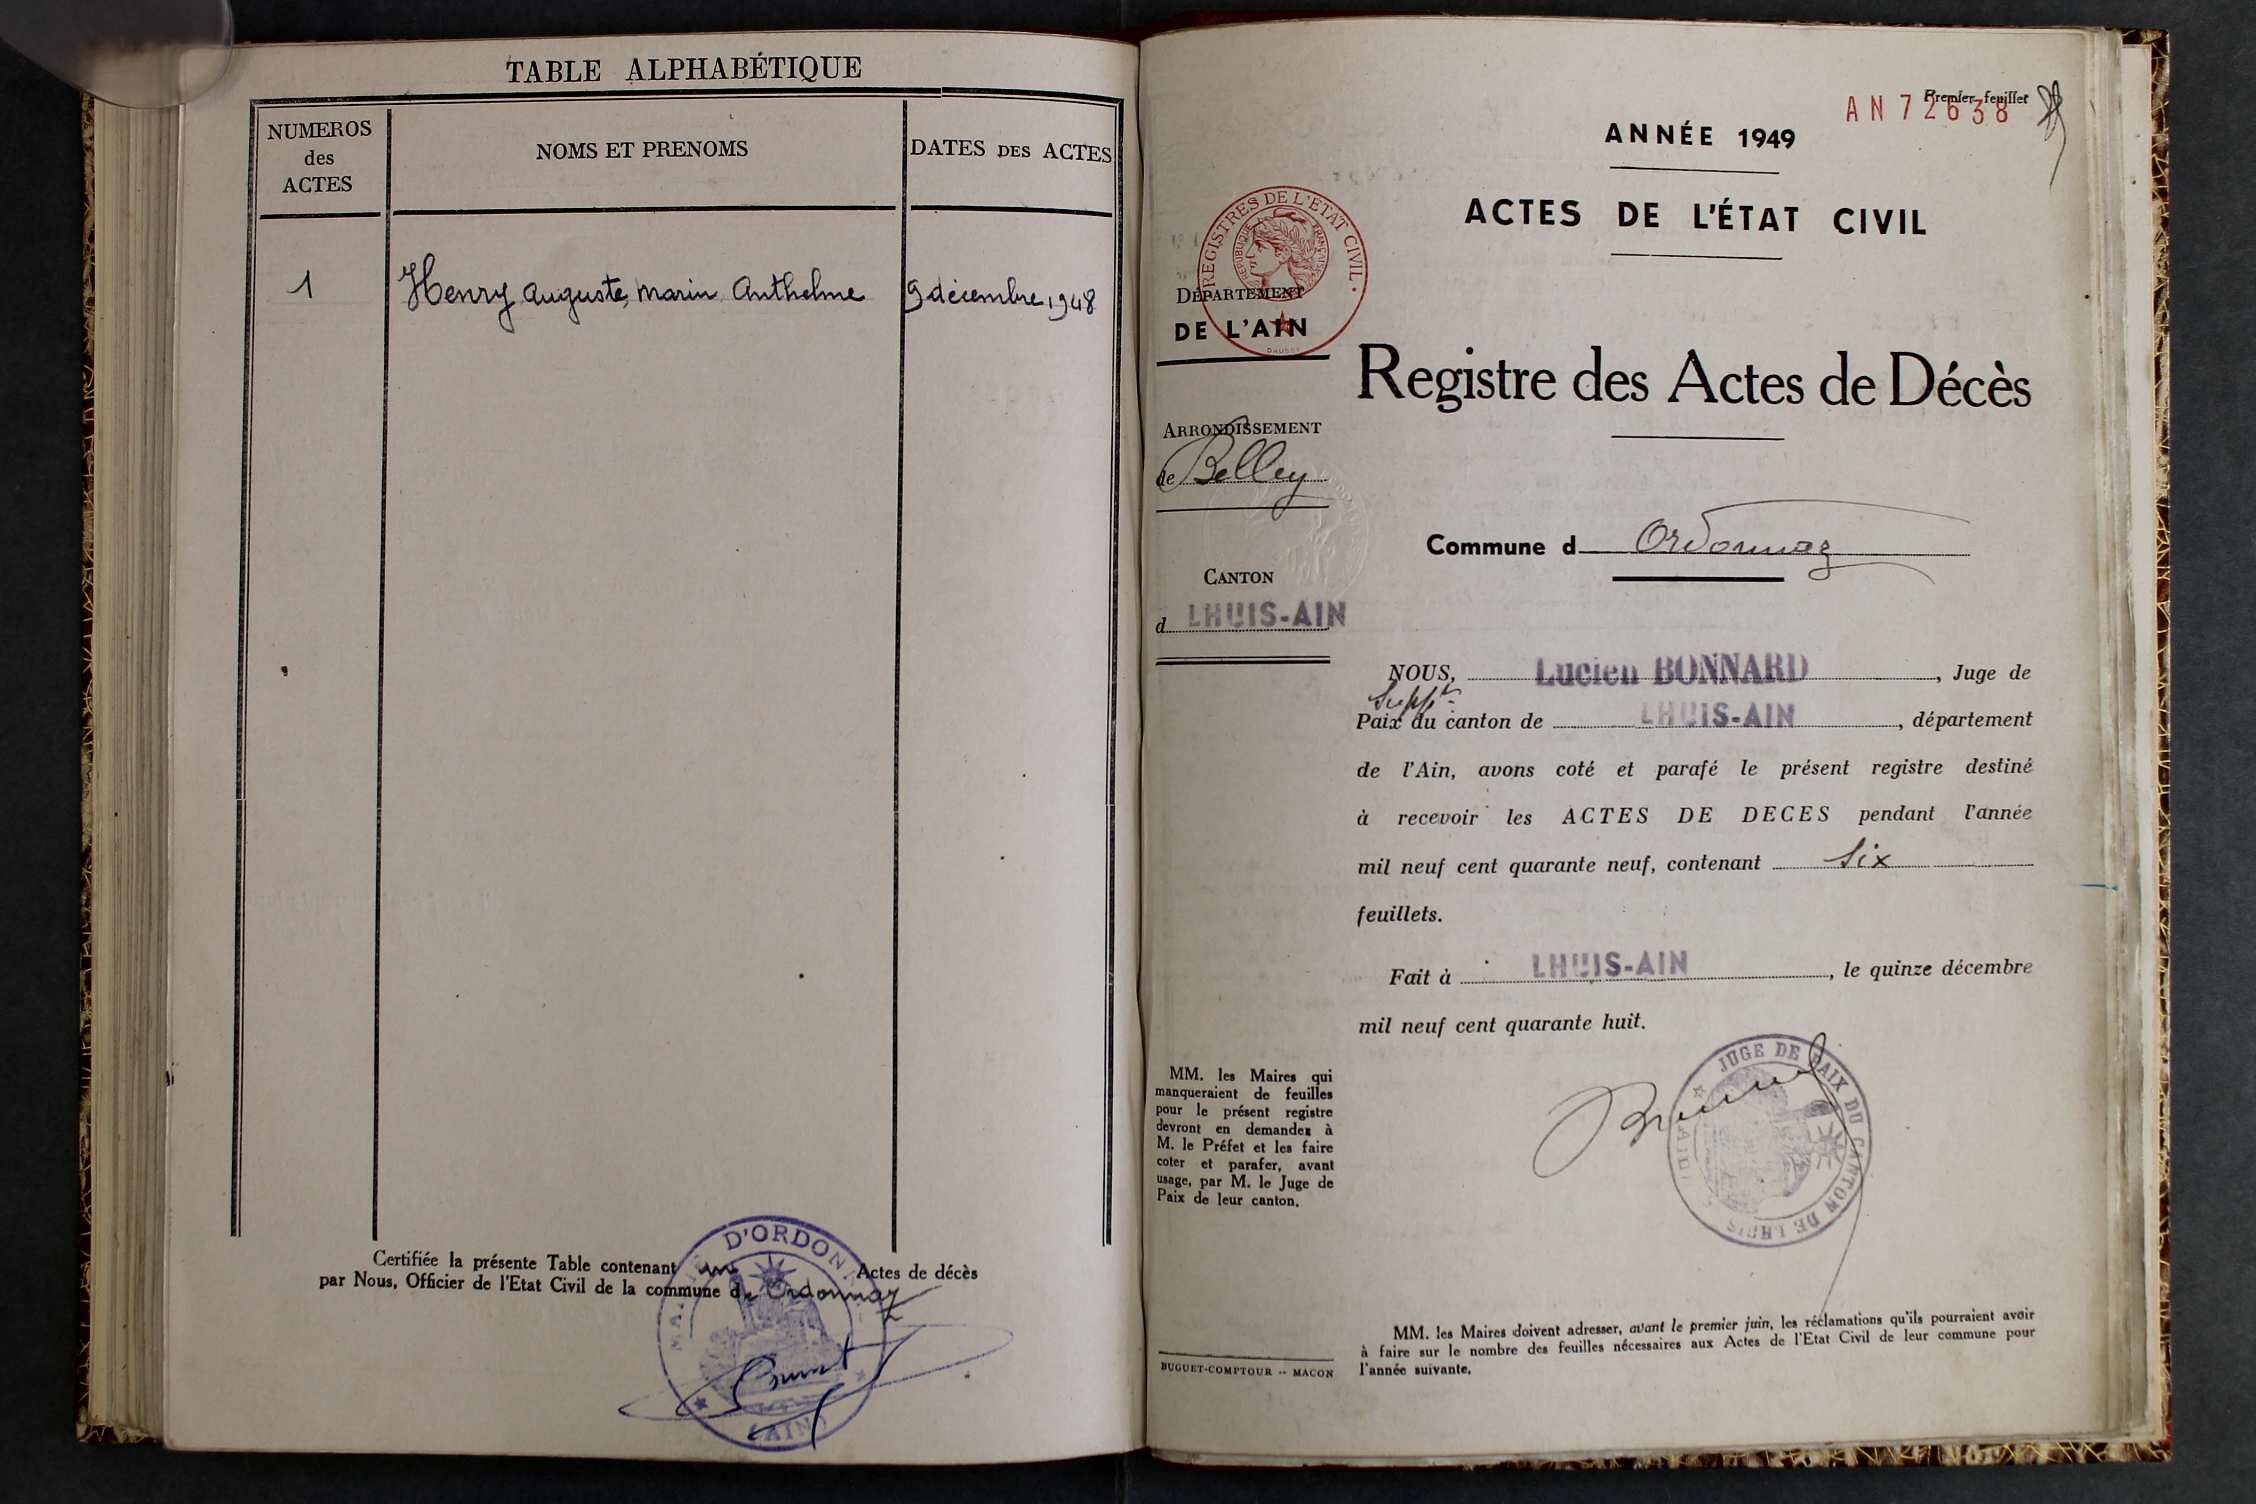 TABLE ALPHABÉTIQUE
NUMEROS
des
ACTES
NOMS ET PRENOMS
DATES DES ACTES
1
Henry Auguste, Marin Anthelme
9 décembre 1948
Certifiée la présente Table contenant un Actes de décès
par Nous, Officier de l'Etat Civil de la commune de Ordonnaz
MAIRIE D'ORDONNAZ
(AIN)
Premier feuillet
AN 72638
ANNÉE 1949
ACTES DE L'ÉTAT CIVIL
REGISTRES DE L'ETAT CIVIL
REPUBLIQUE FRANÇAISE
DÉPARTEMENT
DE L'AIN
Registre des Actes de Décès
ARRONDISSEMENT
de Belley
Commune d Ordonnaz
CANTON
d LHUIS-AIN
NOUS, Lucien BONNARD, Juge de
Suppt
Paix du canton de LHUIS-AIN, département
de l'Ain, avons coté et parafé le présent registre destiné
à recevoir les ACTES DE DECES pendant l'année
mil neuf cent quarante neuf, contenant Six
feuillets.
Fait à LHUIS-AIN, le quinze décembre
mil neuf cent quarante huit.
JUGE DE PAIX DU CANTON DE LHUIS
MM. les Maires qui
manqueraient de feuilles
pour le présent registre
devront en demander à
M. le Préfet et les faire
coter et parafer, avant
usage, par M. le Juge de
Paix de leur canton.
BUGUET-COMPTOUR -- MACON
MM. les Maires doivent adresser, avant le premier juin, les réclamations qu'ils pourraient avoir
à faire sur le nombre des feuilles nécessaires aux Actes de l'Etat Civil de leur commune pour
l'année suivante.